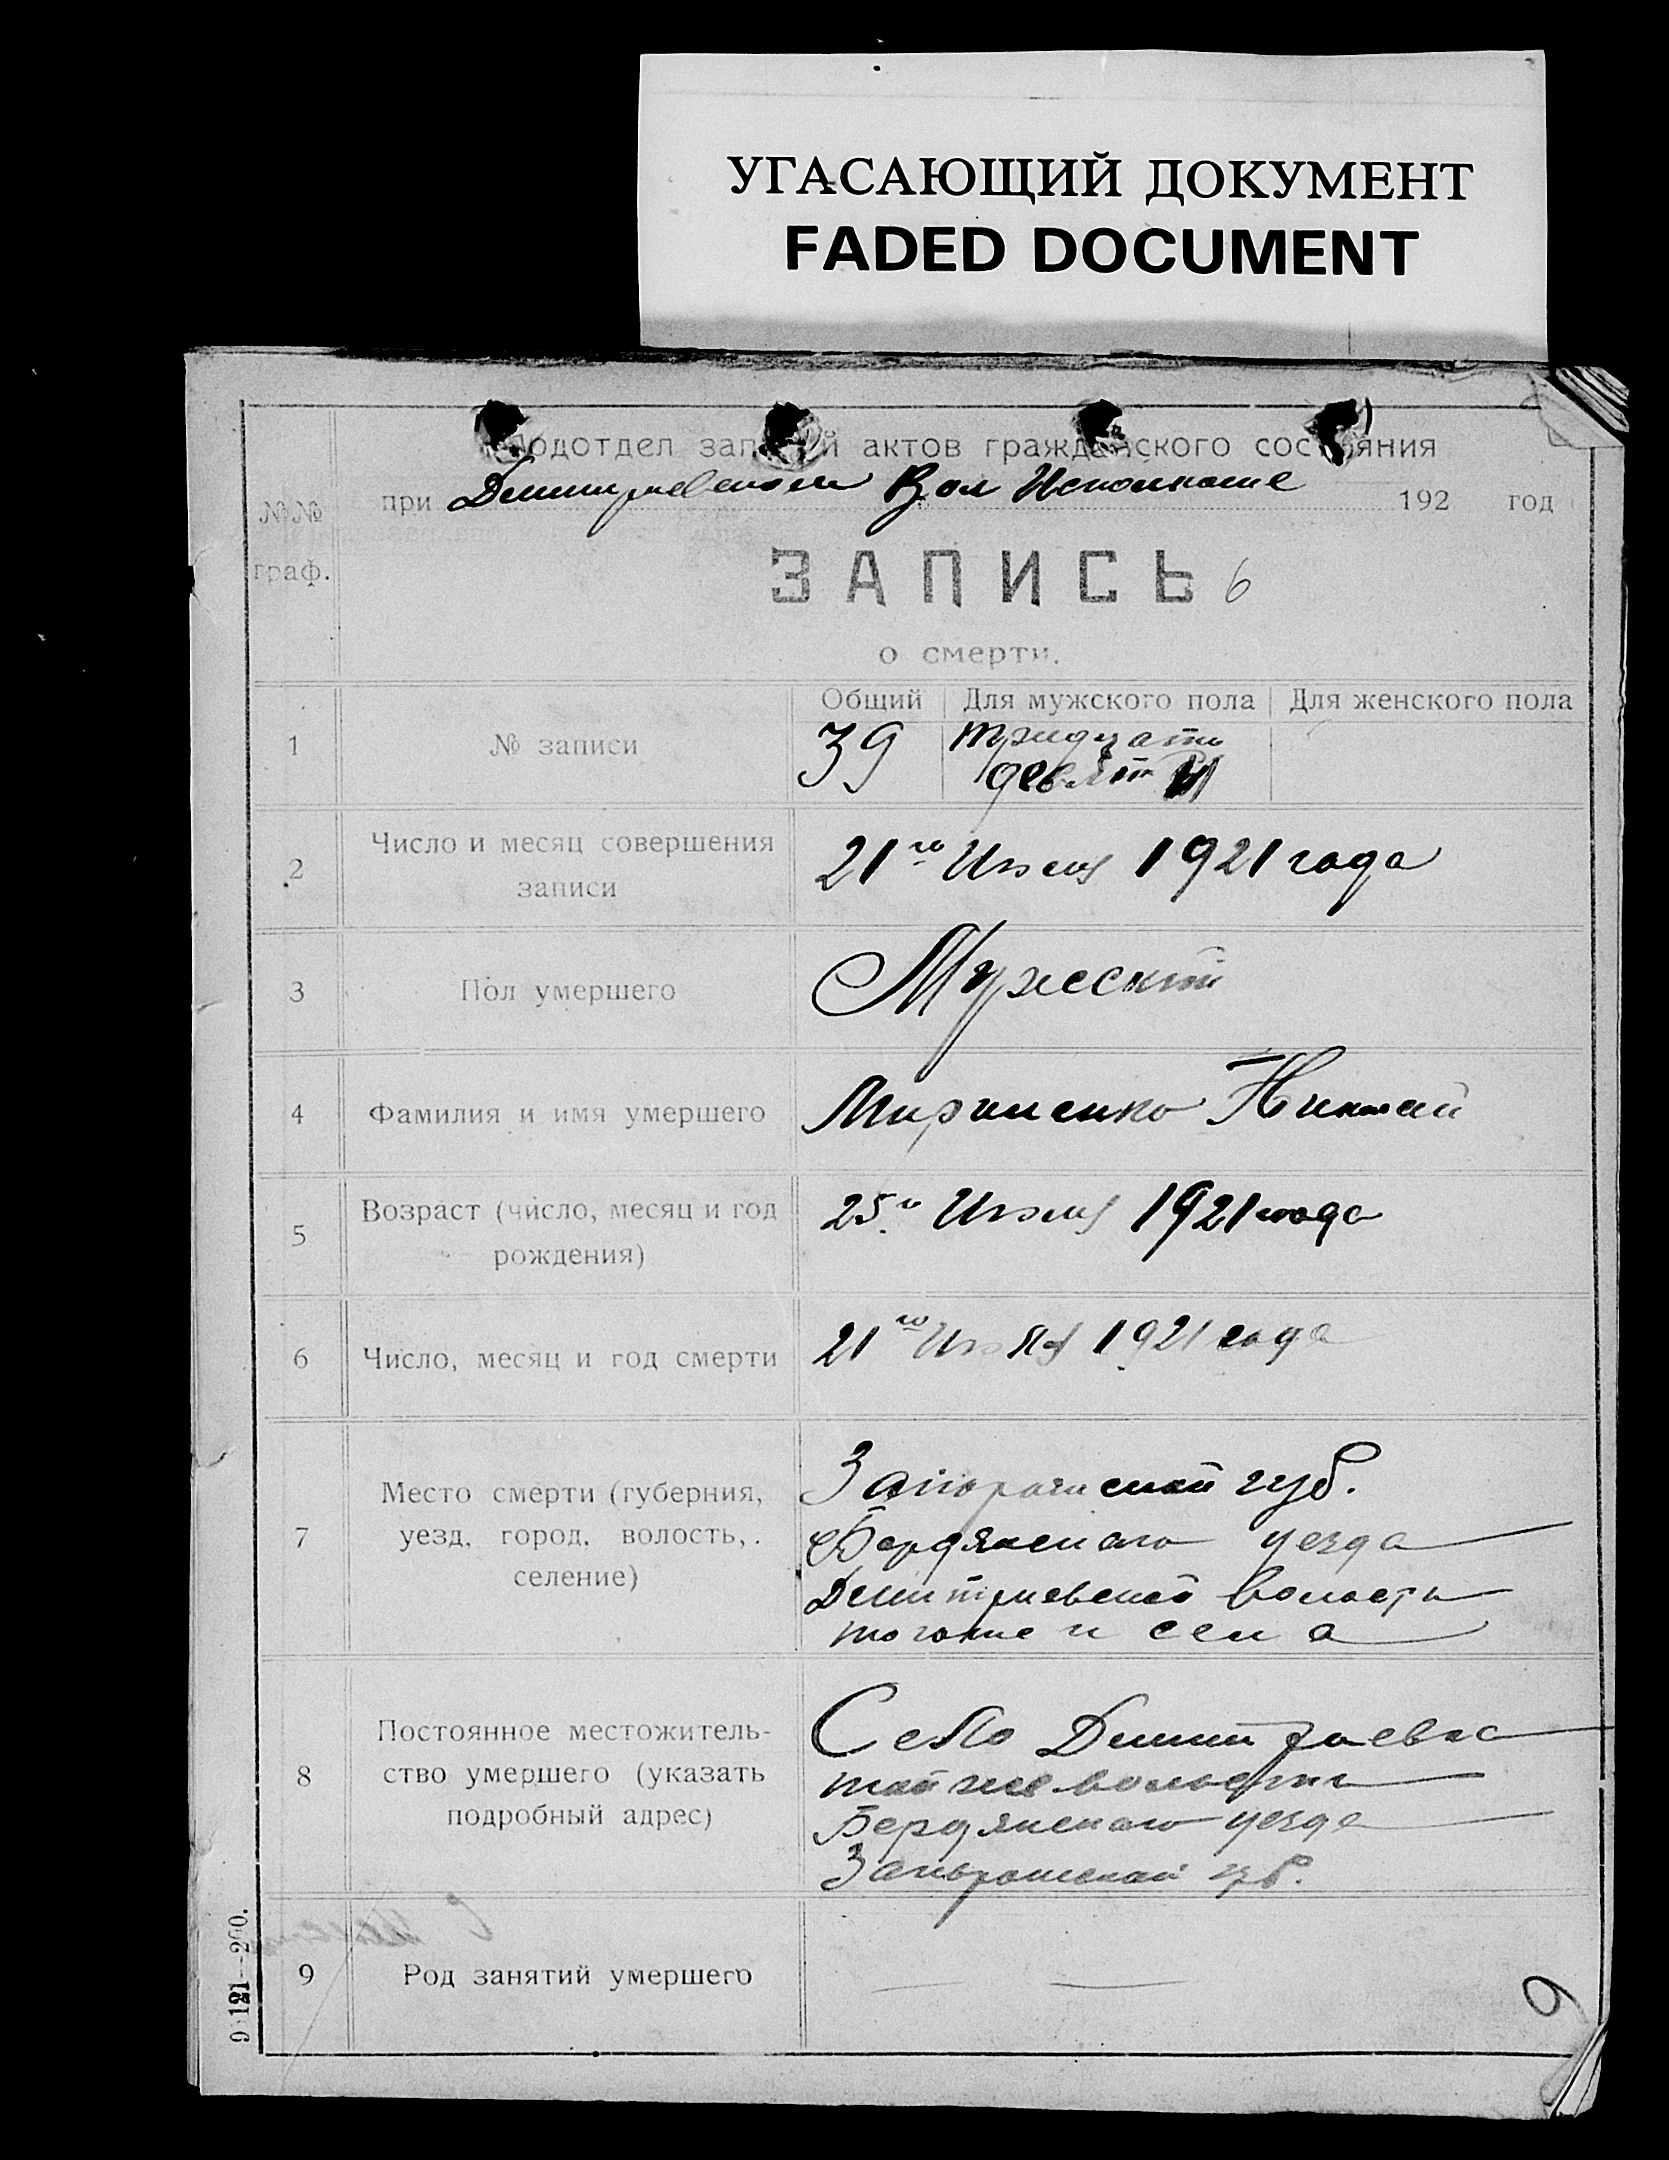 УГАСАЮЩИЙ ДОКУМЕНТ
FADED DOCUMENT
Подотдел записей актов гражданского состояния
при Дмитриевском Вол Исполкоме 192 год
№№
граф.
ЗАПИСЬ 6
о смерти.
Общий Для мужского пола Для женского пола
1 № записи 39 тридцать
девятый
2 Число и месяц совершения
записи
21го Июля 1921 года
3 Пол умершего Мужеский
4 Фамилия и имя умершего Николай
5 Возраст (число, месяц и год
рождения)
25го Июля 1921 года
6 Число, месяц и год смерти 21го Июля 1921 года
7 Место смерти (губерния,
уезд, город, волость,
селение)
Запорожской губ.
Бердянского уезда
Дмитриевской волости
тогоже и села
8 Постоянное местожитель-
ство умершего (указать
подробный адрес)
Село Дмитриевка
той же волости
Бердянского уезда
Запорожской губ.
9 Род занятий умершего
9